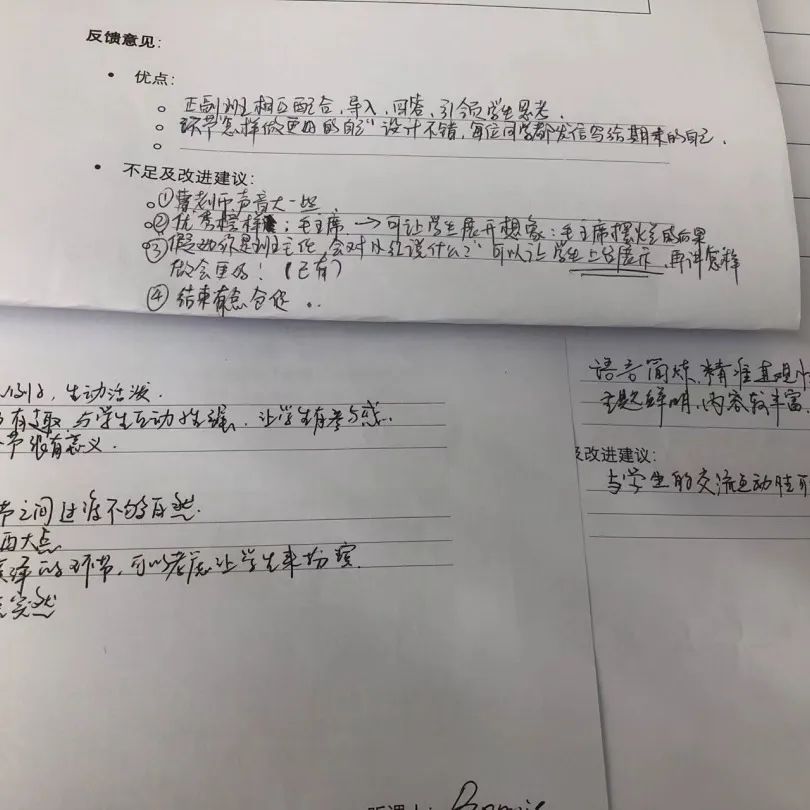 反馈意见:
优点:
正副班主相互配合,导入,回答,引领学生思考.
环节"怎样做更好的自己"设计不错,每位同学都发信写给期末的自己.
不足及改进建议:
①曹老师声音大一些
②优秀榜样:毛主席→可让学生展开想象:毛主席摆烂的后果
③"假如你是班主任,会对小红说什么?"可以让学生上台展示,再讲怎样
做会更好!(已有)
④结束有点仓促..
,生动活泼.
有趣,与学生互动性强,让学生有参与感.
节很有意义.
节之间过渡不够自然.
再大点
的环节,可以考虑让学生来扮演.
突然
语言简炼,精准直观
主题鲜明,内容较丰富
及改进建议:
与学生的交流互动性可